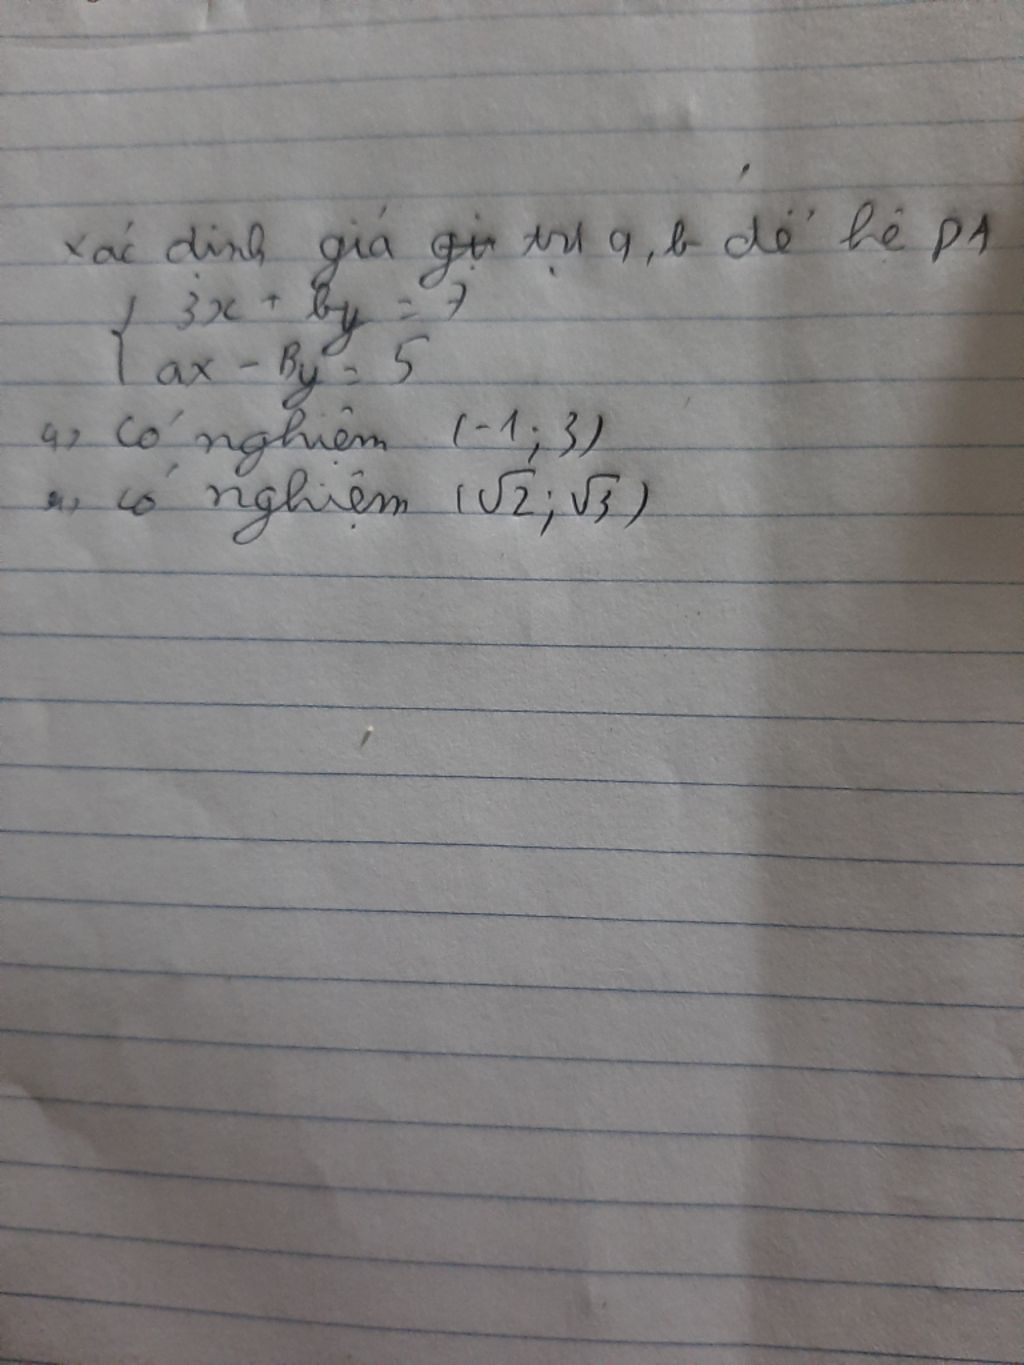 xác định giá trị a, b để hệ PT
{ 3x + by = 7
ax - By = 5
a, có nghiệm (-1; 3)
có nghiệm (√2; √3)